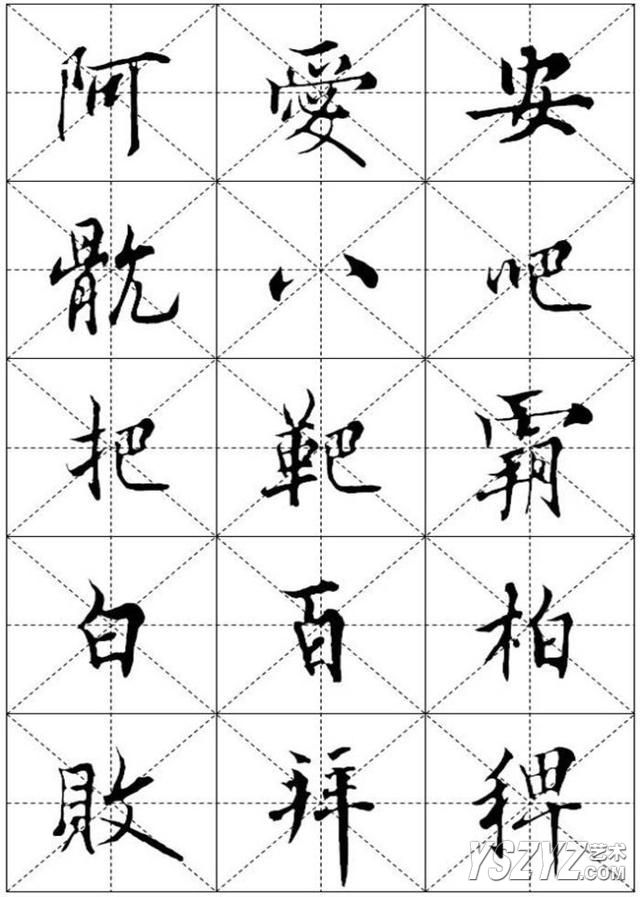 阿 愛 安
骯 八 吧
把 靶 霸
白 百 柏
敗 拜 稗
YSZYZ 艺术
.COM